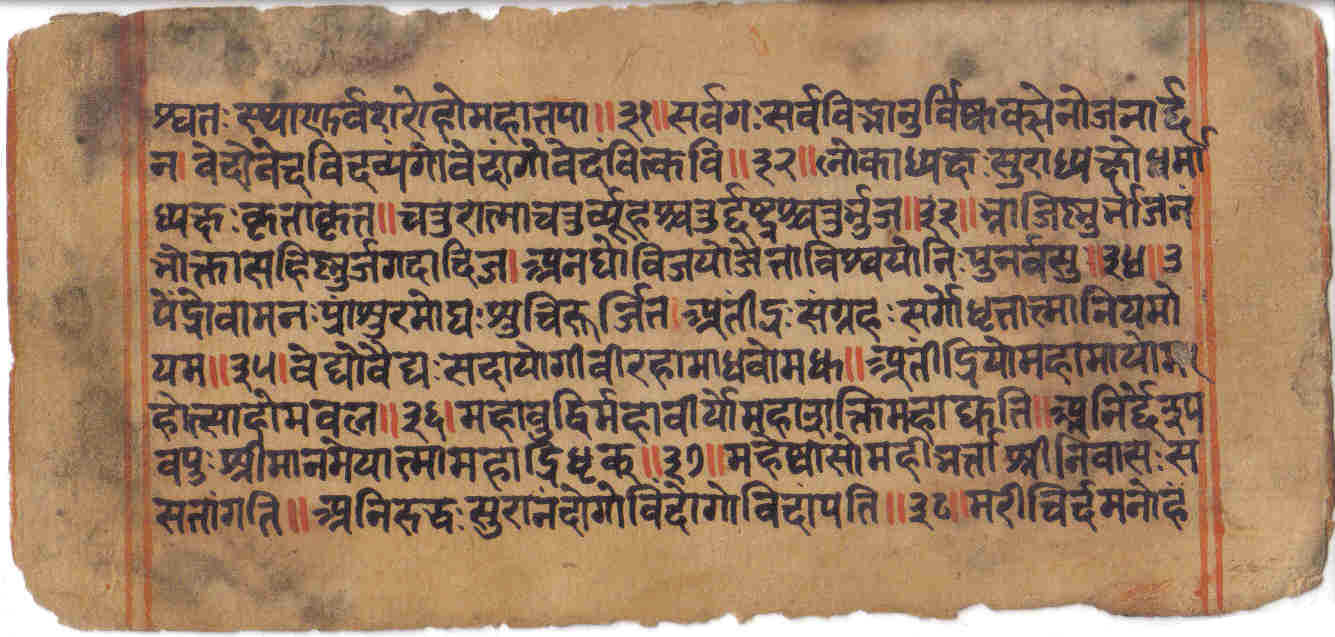 श्वतः स्थाणुर्वरारोहोमहातपा॥३१॥सर्वगःसर्वविद्भानुर्विष्वक्सेनोजनार्द्द
न।वेदोवेदविदव्यंगोवेदांगोवेदवित्कवि॥३२॥लोकाध्यक्षःसुराध्यक्षोधर्मा
ध्यक्षःकृताकृत॥चतुरात्माचतुर्व्यूहश्चतुर्द्दंष्ट्रश्चतुर्भुज॥३३॥भ्राजिष्णुर्भोजनं
भोक्तासहिष्णुर्जगदादिज।अनघोविजयोजेताविश्वयोनिःपुनर्वसु॥३४॥उ
पेंद्रोवामनःप्रांशुरमोघःशुचिरूर्जित।अतींद्रःसंग्रहःसर्गोधृतात्मानियमो
यम॥३५।वेद्योवैद्यःसदायोगीवीरहामाधवोमधु॥अतींद्रियोमहामायोम
होत्साहोमबल॥३६।महाबुद्धिर्महावीर्योमहाशक्तिमहाद्युति॥अनिर्द्देश्य
वपुःश्रीमानमेयात्मामहाद्रिधृक्॥३७॥महेष्वासोमहीभर्त्ताश्रीनिवासःस
सतांगति॥अनिरुद्धःसुरानंदोगोविंदोगोविदांपति॥३८॥मरीचिर्दमनोहं